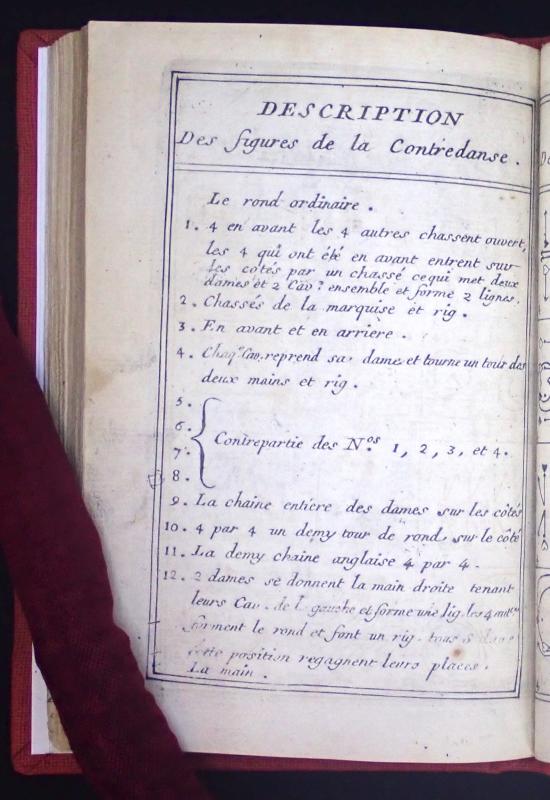 DESCRIPTION
Des figures de la Contredanse.
Le rond ordinaire.
1. 4 en avant les 4 autres chassent ouvert,
les 4 qui ont été en avant entrent sur
les côtés par un chassé ce qui met deux
dames et 2 Cav.s ensemble et forme 2 lignes.
2. Chassés de la marquise et rig.
3. En avant et en arriere.
4. Chaq.e Cav. reprend sa dame et tourne un tour des
deux mains et rig.
5.
6.
7.
8.
Contrepartie des N.os 1, 2, 3, et 4.
9. La chaine entiere des dames sur les côtés
10. 4 par 4 un demy tour de rond sur le côté
11. La demy chaine anglaise 4 par 4.
12. 2 dames se donnent la main droite tenant
leurs Cav. de la gauche et forme une lig. les 4
forment le rond et font un rig. tous 8
cette position regagnent leurs places.
La main.